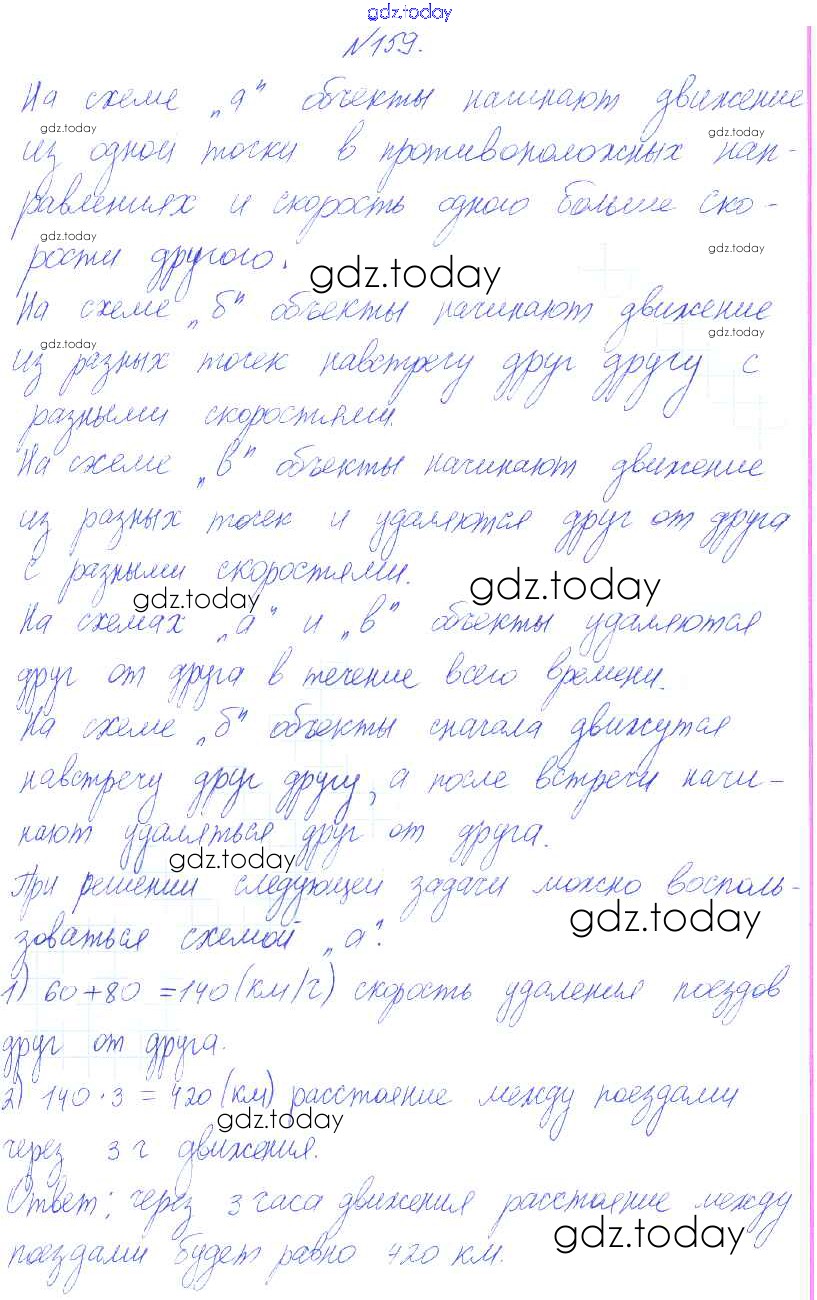 gdz.today
№159.
На схеме „а" объекты начинают движение
gdz.today gdz.today
из одной точки в противоположных нап-
равлениях и скорость одного больше ско-
gdz.today gdz.today
рости другого.
gdz.today
На схеме „б" объекты начинают движение
gdz.today gdz.today
из разных точек навстречу друг другу с
разными скоростями.
На схеме „в" объекты начинают движение
из разных точек и удаляются друг от друга
с разными скоростями.
gdz.today gdz.today
На схемах „а" и „в" объекты удаляются
друг от друга в течение всего времени.
На схеме „б" объекты сначала движутся
навстречу друг другу, а после встречи начи-
нают удаляться друг от друга.
gdz.today
При решении следующей задачи можно восполь-
зоваться схемой „а".
gdz.today
1) 60+80 =140(км/ч) скорость удаления поездов
друг от друга.
2) 140·3 = 420(км) расстояние между поездами
gdz.today
через 3 ч движения.
Ответ: через 3 часа движения расстояние между
gdz.today
поездами будет равно 420 км.